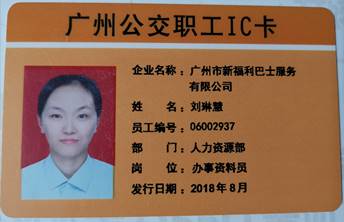 广州公交职工IC卡
企业名称：广州市新福利巴士服务
有限公司
姓　　名：刘琳慧
员工编号：06002937
部　　门：人力资源部
岗　　位：办事资料员
发行日期：2018年8月